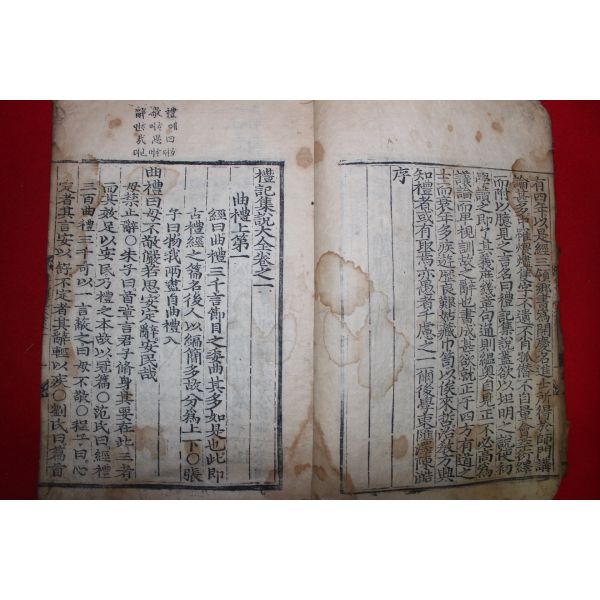 有四年以是經三領鄉書爲開慶名進士所得於師門講
論甚多中罹煨燼隻字不遺不肖孤僭不自量會萃衍繹
而附以臆見之言名曰禮記集說蓋欲以坦明之說使初
學讀之即了其義庶幾章句通則縕奧自見正不必高爲
議論而卑視訓故之辭也書成甚欲就正于四方有道之
士而衰年多疾遊歷良艱姑藏巾笥以俟來哲治教方興
知禮者或有取焉亦愚者千慮之一爾後學東匯澤陳澔
序
禮예曰
敬
辭
禮記集說大全卷之一
曲禮上第一
經曰曲禮三千言節目之委曲其多如是也此即
古禮經之篇名後人以編簡多故分爲上下○張
子曰物我兩盡自曲禮入
曲禮曰毋不敬儼若思安定辭安民哉
毋禁止辭○朱子曰首章言君子脩身其要在此三者
而其效足以安民乃禮之本故以冠篇○范氏曰經禮
三百曲禮三千可以一言蔽之曰毋不敬○程子曰心
定者其言安以舒不定者其辭輕以疾○劉氏曰篇首